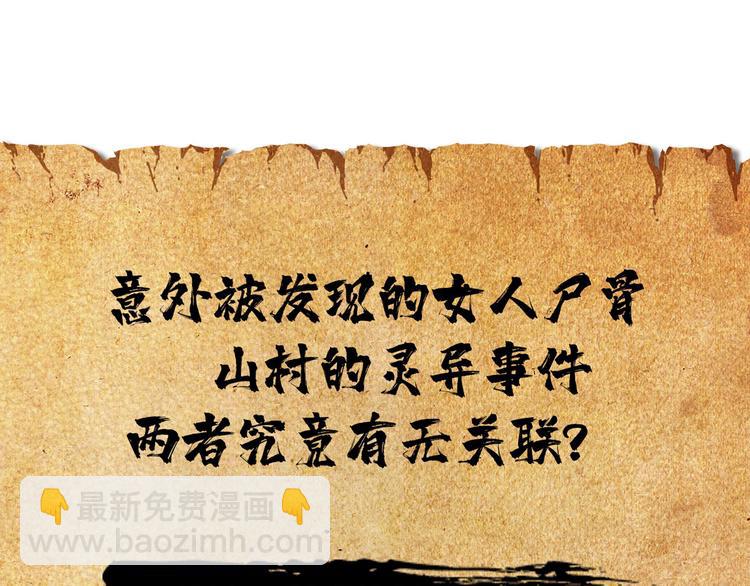 意外被发现的女人尸骨
山村的灵异事件
两者究竟有无关联?
👇最新免费漫画👇
www.baozimh.com